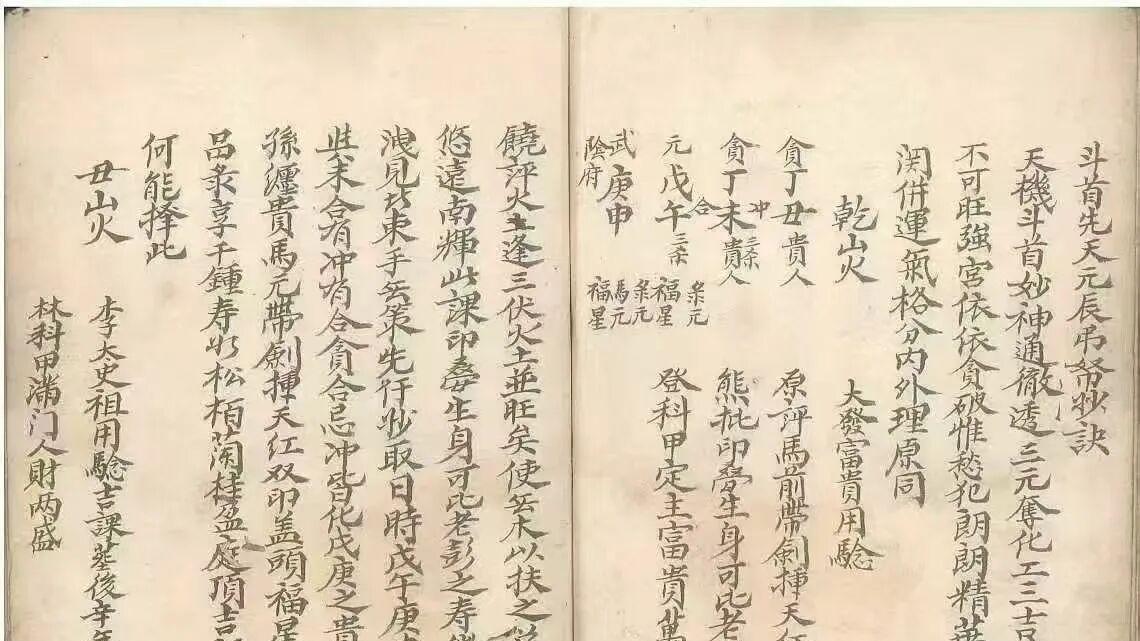 斗首先天元辰吊替妙訣
天機斗首妙神通徹透三元奪化工二
不可旺強宮依依貪破惟愁犯朗朗精
関併運氣格分内外理原同
乾山火
大發富貴用驗
貪丁丑貴人
冲
貪丁未貴人
合
元戊午
武庚申
陰府
福星
馬元
福星
原評馬前帶劍揮天
熊批印叠生身可比老
登科甲定主富貴萬
饒評火土逢三伏火土並旺矣使無木以扶之
悠遠南輝此課印叠生身可比老彭之寿
洩見皆束手無策先仟妙取日時戊午庚
丑未合有冲有合貪合忌冲皆化戊庚之貴
孫纏貴馬元帶劍揮天紅双印盖頭福星
吕录享千鍾寿似松栢蘭桂盈庭頂吉
何能择此
丑山火
李太史祖用驗吉課塟後辛
林科甲满门人財两盛